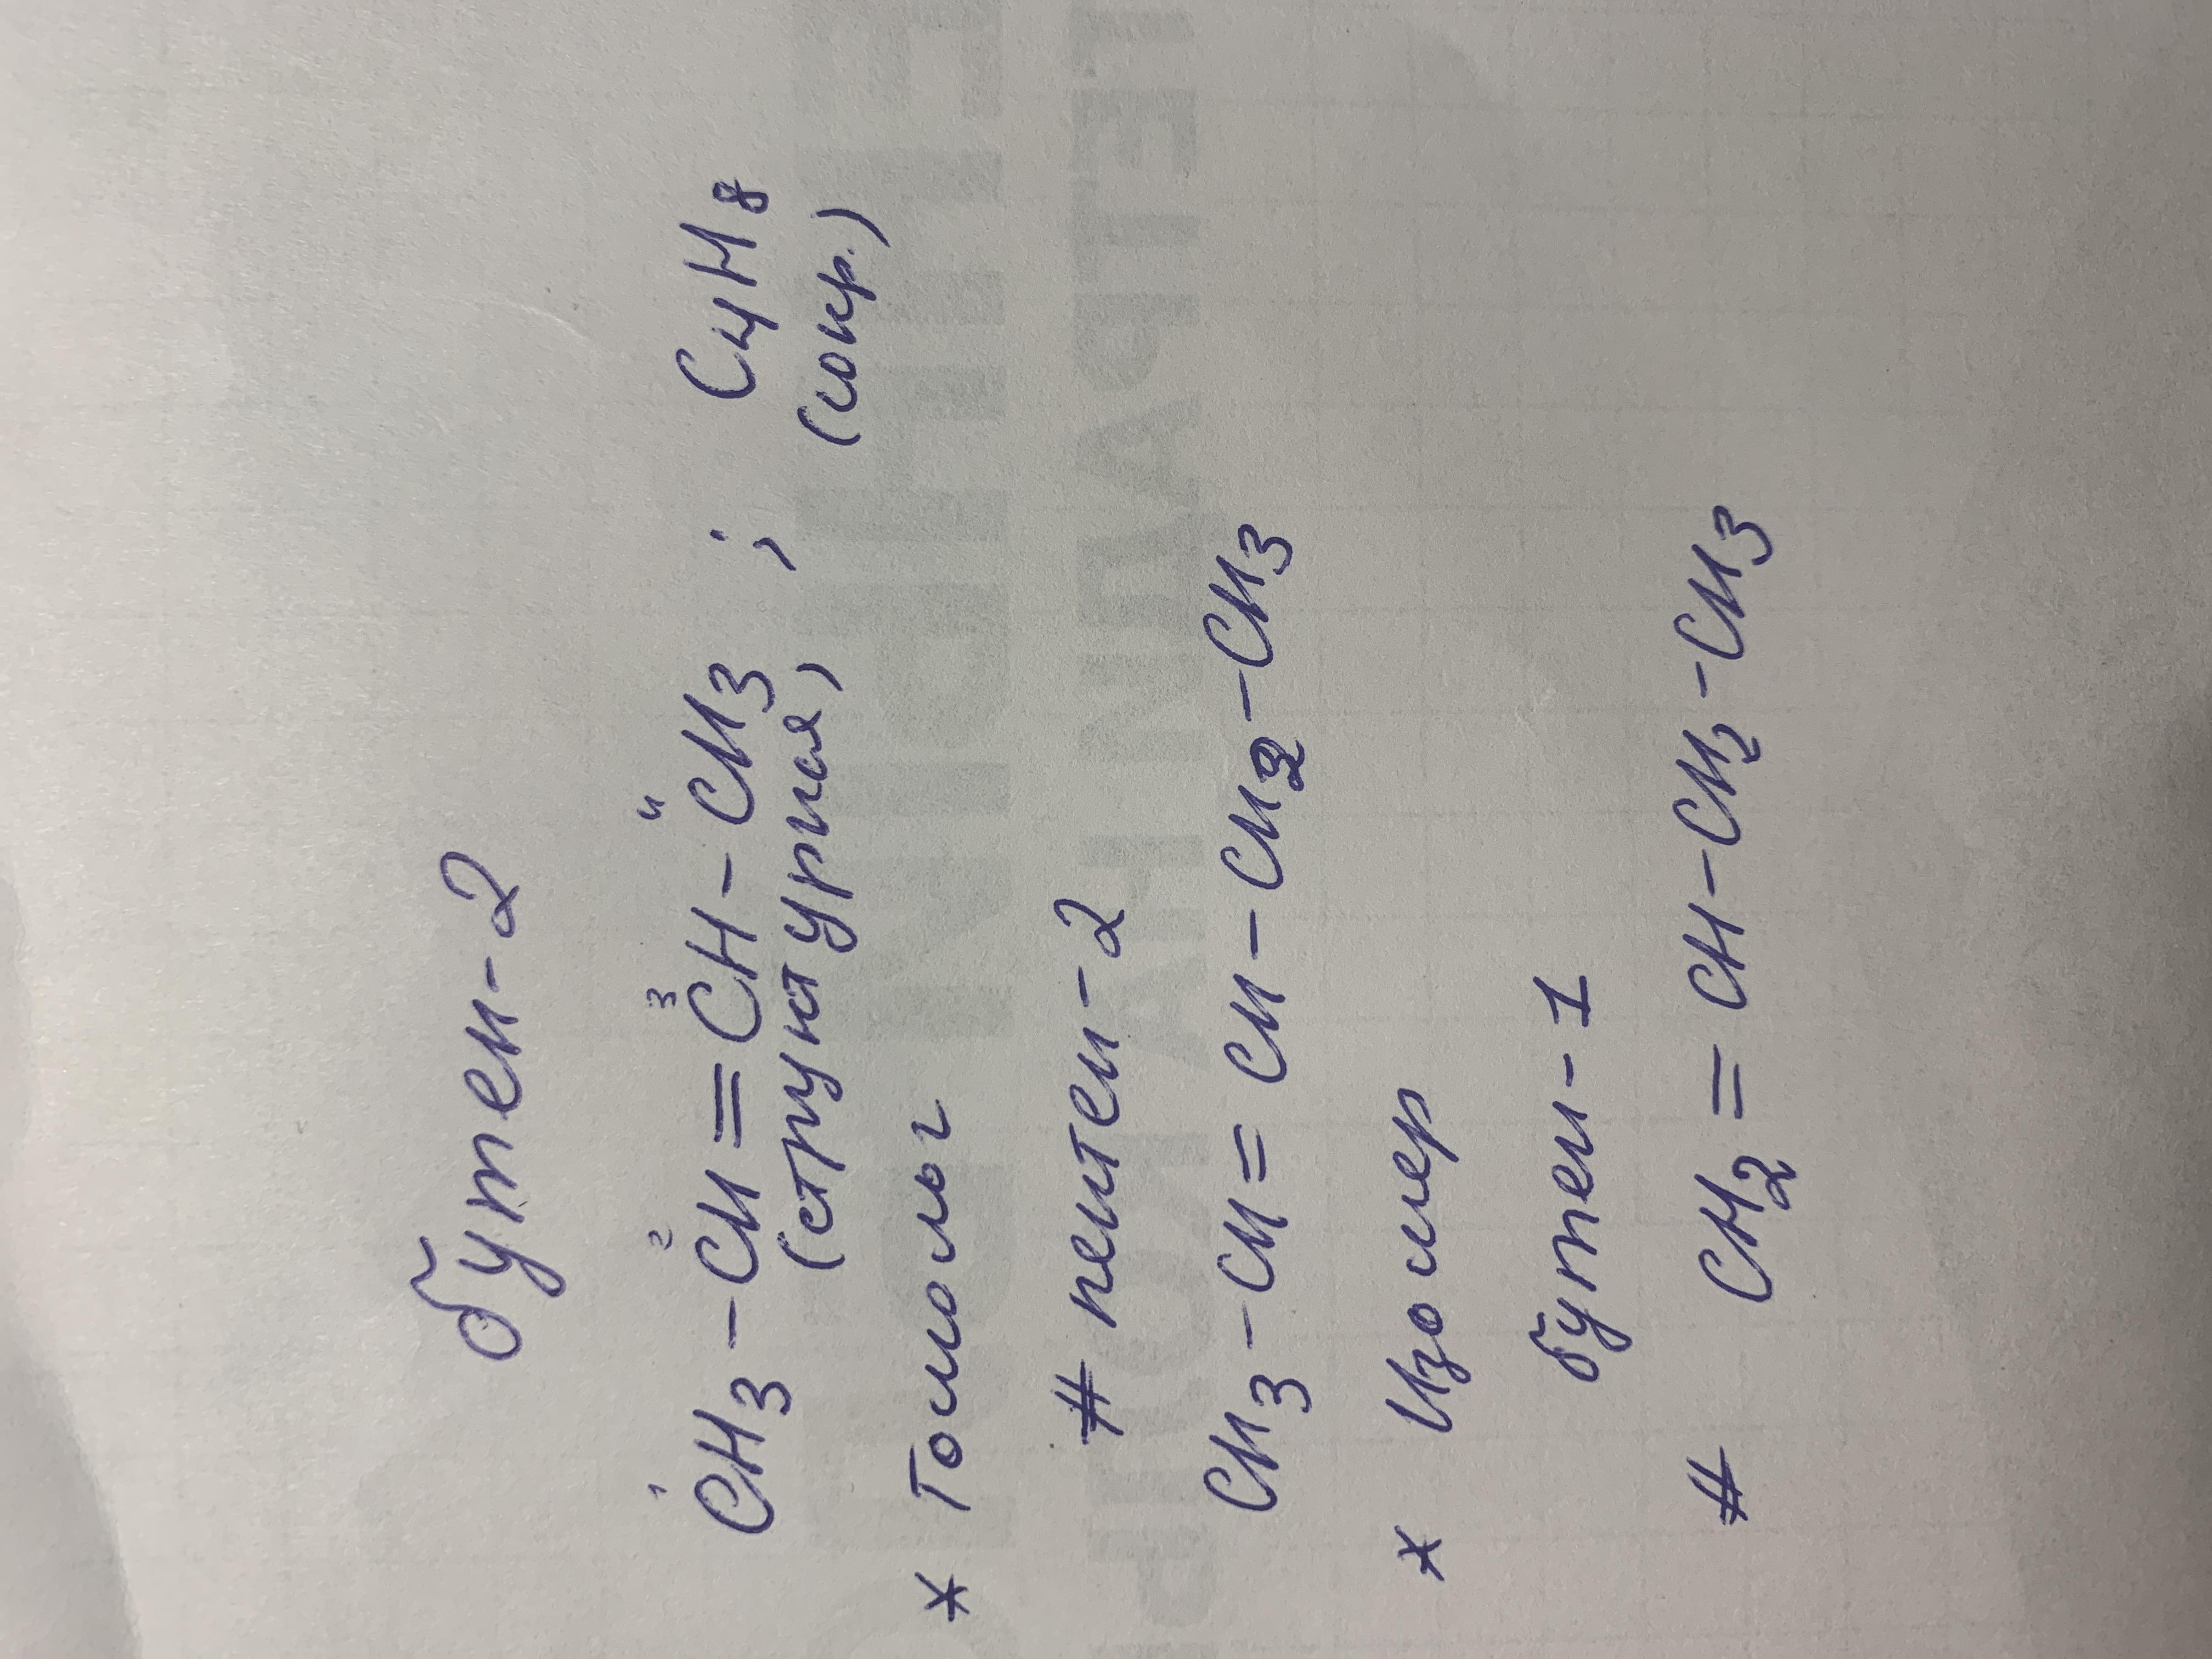 бутен-2
¹CH₃-²CH=³CH-⁴CH₃ ; C₄H₈
(структурная) (сокр.)
* Гомолог
# пентен-2
CH₃-CH=CH-CH₂-CH₃
* Изомер
бутен-1
# CH₂=CH-CH₂-CH₃